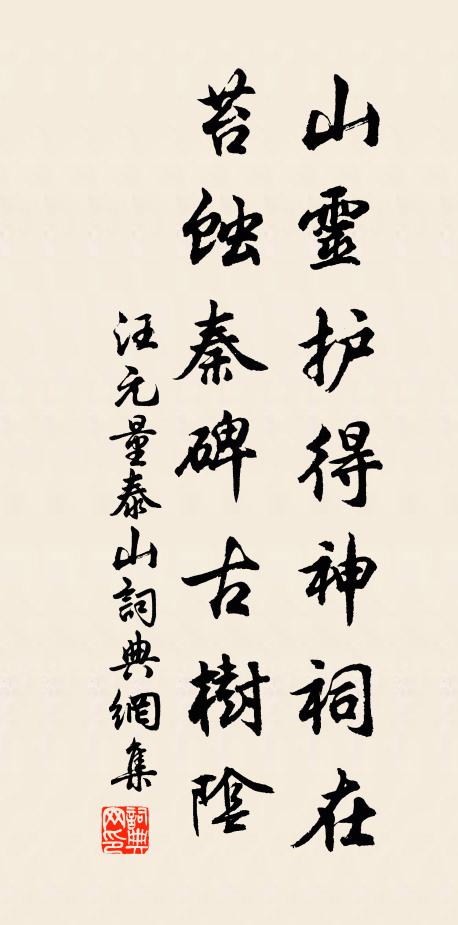 山靈护得神祠在
苔蝕秦碑古樹陰
汪元量泰山詞典網集
詞典网印